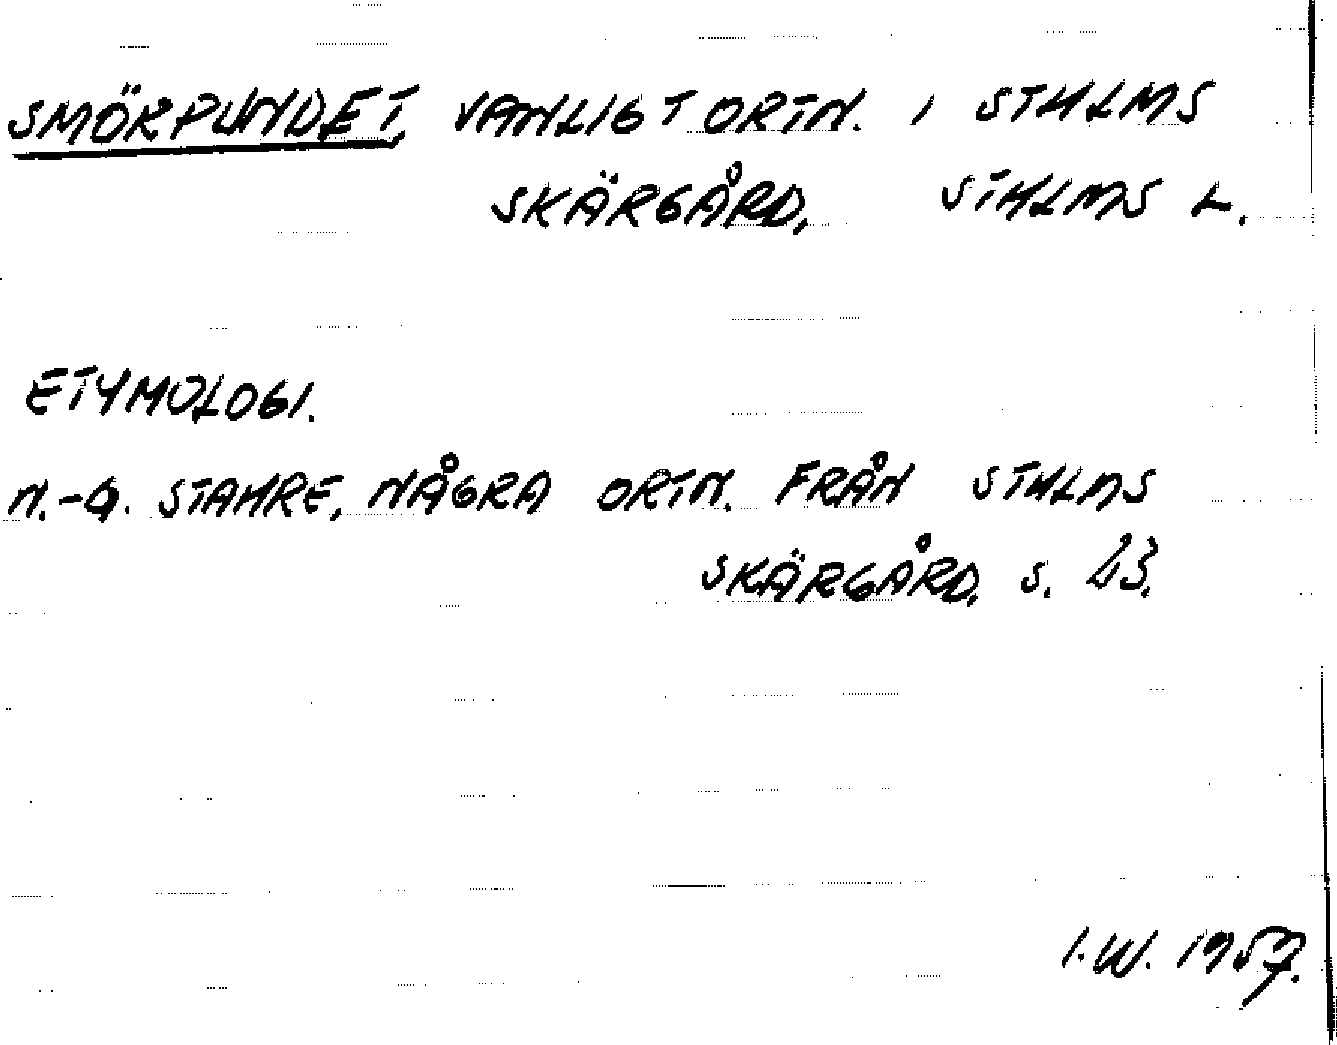 SMÖRPUNDET, VANLIGT ORTN. I STHLMS
SKÄRGÅRD, STHLMS L.
ETYMOLOGI.
N.-G. STAHRE, NÅGRA ORTN. FRÅN STHLMS
SKÄRGÅRD, S. 23.
I.W. 1957.